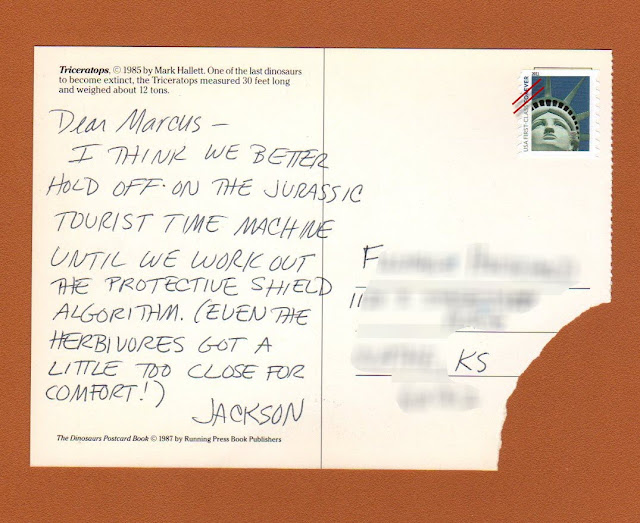 Triceratops, © 1985 by Mark Hallett. One of the last dinosaurs
to become extinct, the Triceratops measured 30 feet long
and weighed about 12 tons.
Dear Marcus –
I THINK WE BETTER
HOLD OFF ON THE JURASSIC
TOURIST TIME MACHINE
UNTIL WE WORK OUT
THE PROTECTIVE SHIELD
ALGORITHM. (EVEN THE
HERBIVORES GOT A
LITTLE TOO CLOSE FOR
COMFORT!)
JACKSON
The Dinosaurs Postcard Book © 1987 by Running Press Book Publishers
2011
USA FIRST-CLASS FOREVER
F
KS